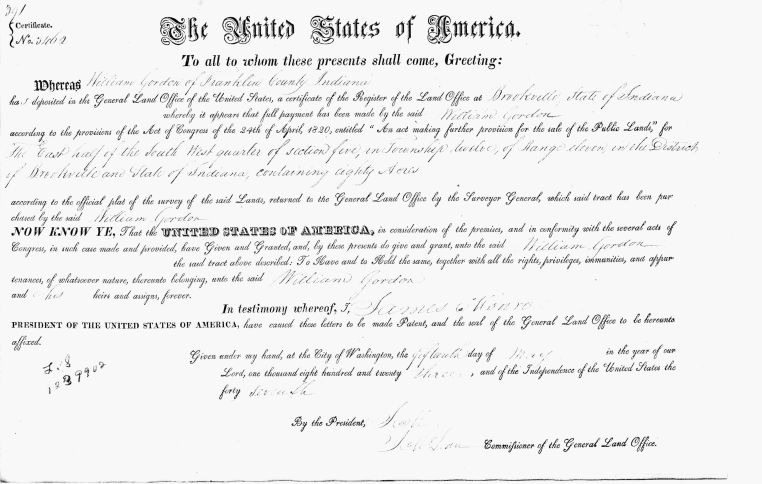 Certificate.
No. 3462
The United States of America.
To all to whom these presents shall come, Greeting:
Whereas William Gordon of Franklin County Indiana
has deposited in the General Land Office of the United States, a certificate of the Register of the Land Office at Brookville State of Indiana
whereby it appears that full payment has been made by the said William Gordon
according to the provisions of the Act of Congress of the 24th of April, 1820, entitled "An act making further provision for the sale of the Public Lands," for
The East half of the South West quarter of section five, in Township twelve, of Range eleven, in the District
of Brookville and State of Indiana, containing eighty Acres
according to the official plat of the survey of the said Lands, returned to the General Land Office by the Surveyor General, which said tract has been pur
chased by the said William Gordon
NOW KNOW YE, That the UNITED STATES OF AMERICA, in consideration of the premises, and in conformity with the several acts of
Congress, in such case made and provided, have Given and Granted, and, by these presents do give and grant, unto the said William Gordon
the said tract above described: To Have and to Hold the same, together with all the rights, privileges, immunities, and appur
tenances, of whatsoever nature, thereunto belonging, unto the said William Gordon
and his heirs and assigns, forever.
In testimony whereof, I, James Monroe
PRESIDENT OF THE UNITED STATES OF AMERICA, have caused these letters to be made Patent, and the seal of the General Land Office to be hereunto
affixed.
Given under my hand, at the City of Washington, the day of May in the year of our
Lord, one thousand eight hundred and twenty three, and of the Independence of the United States the
forty seventh
By the President,
Commissioner of the General Land Office.